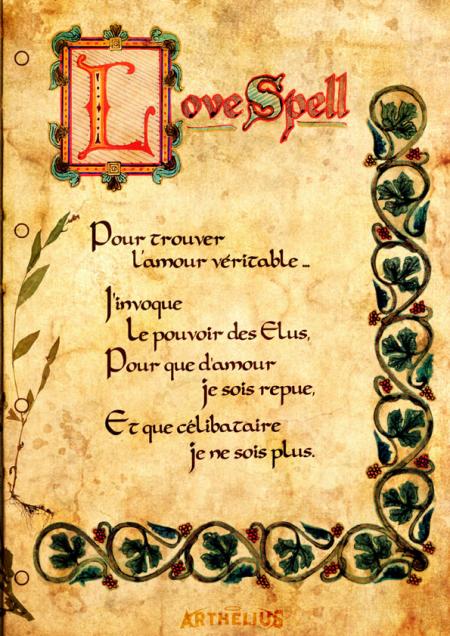 Love Spell
Pour trouver
l'amour véritable ...
J'invoque
Le pouvoir des Elus,
Pour que d'amour
je sois repue,
Et que célibataire
je ne sois plus.
ARTHELIUS